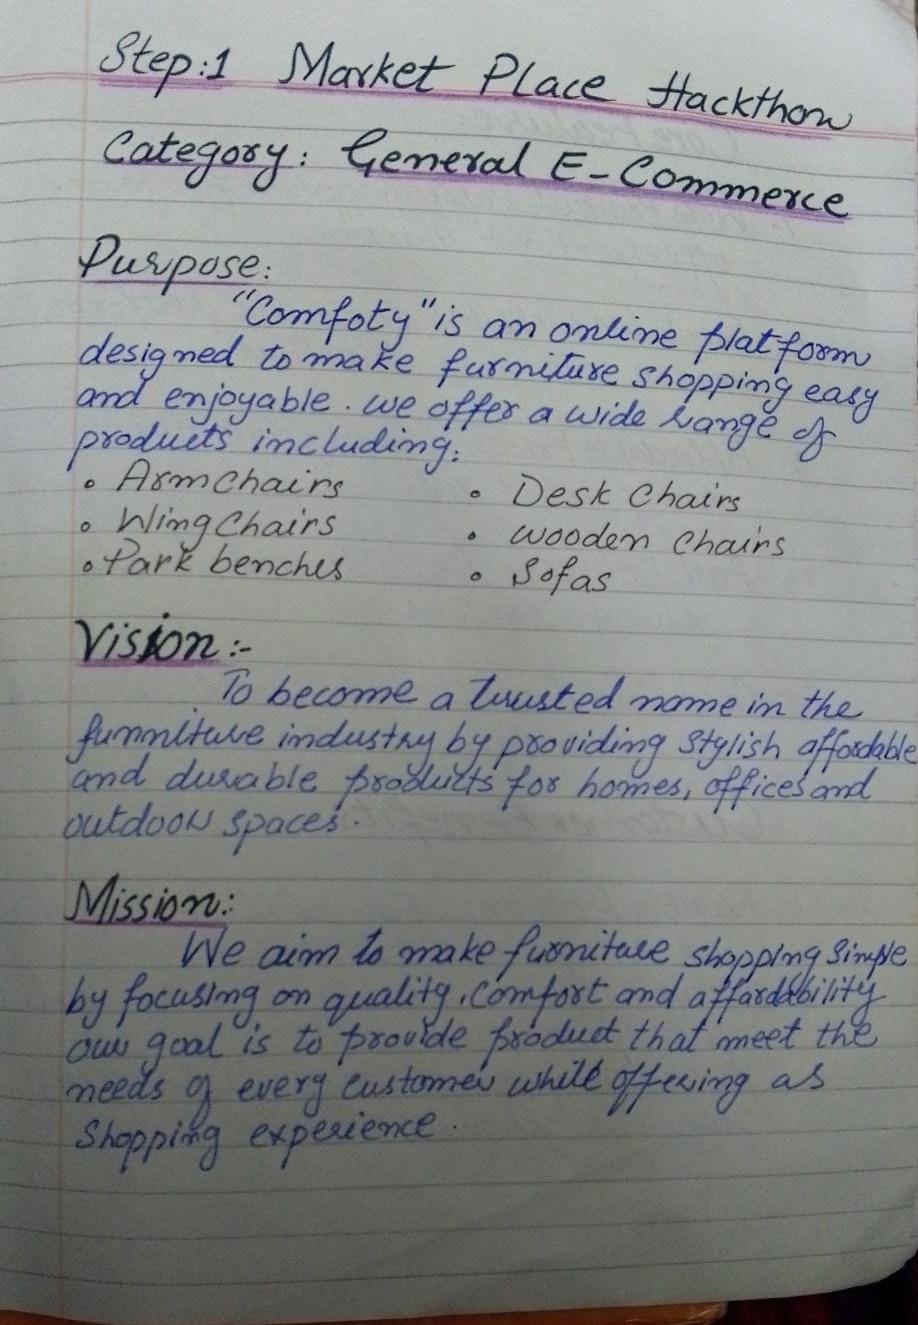 Step:1 Market Place Hackthon
Category: General E-Commerce
Purpose:
"Comfoty" is an online platform
designed to make furniture shopping easy
and enjoyable. we offer a wide range of
products including:
• Arm Chairs • Desk Chairs
• Wing Chairs • Wooden Chairs
• Park benches • Sofas
Vision:-
To become a trusted name in the
funniture industry by providing stylish affordable
and durable products for homes, offices and
outdoor spaces.
Mission:
We aim to make furniture shopping simple
by focusing on quality, comfort and affardability
our goal is to provide product that meet the
needs of every customer while offering as
Shopping experience.